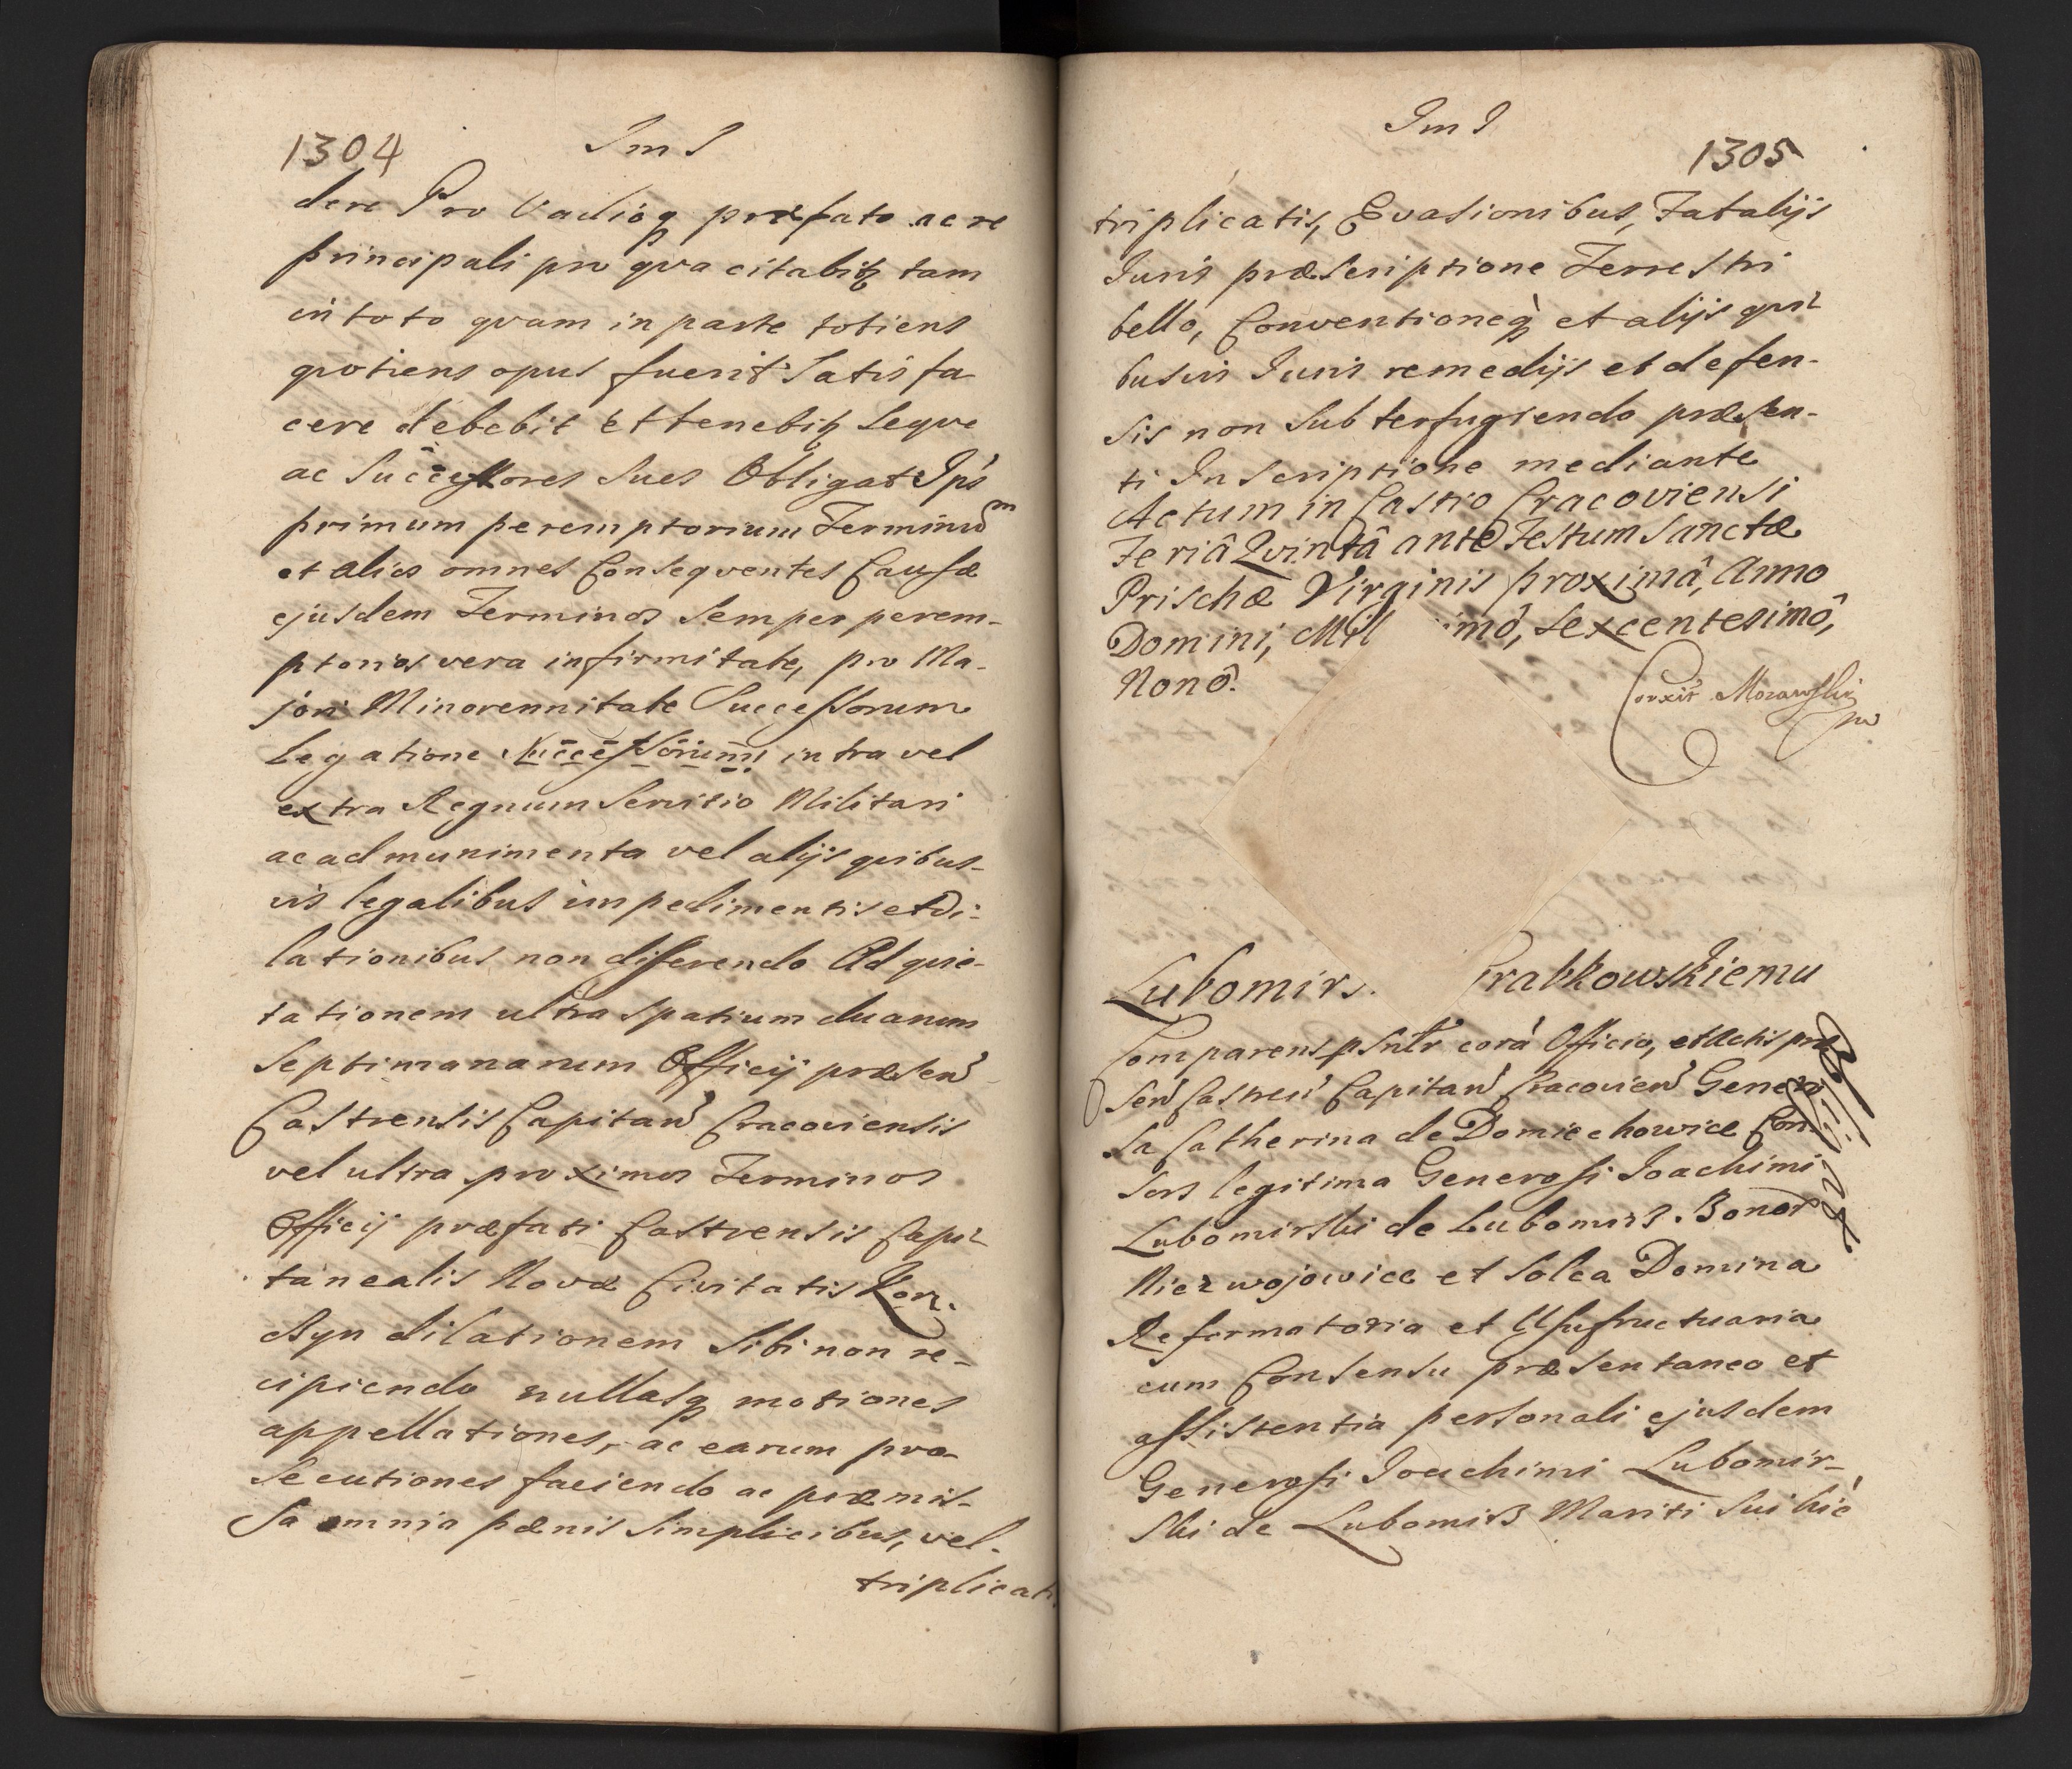 1304
ImI
dere Pro Vadioq præfato ac re
principali pro qva citabitz tam
in toto qvam in parte totiens
qvotiens opus fuerit Satis fa
cere debebit et tenebitz Seqve
ac Successores Suos Obligat Ips
primum peremptorium Terminum
et alios omnes Conseqventes Causæ
ejusdem Terminos Semper perem-
ptorios vera infirmitate, pro Ma-
jori Minorennitate Successorum
Legatione Successorum intra vel
extra Regnum Servitio Militari
ac ad munimenta vel alijs qvibus-
vis legalibus impedimentis et Di-
lationibus non differendo Ad qvie-
tationem ultra Spatium duarum
Septimanarum Officij præsen
Castrensis Capitan Cracoviensis
vel ultra proximos Terminos
Officij præfati Castrensis Capi-
tanealis Novæ Civitatis Kor-
czyn dilationem Sibi non re-
cipiendo nullasq motiones
appellationes, ac earum pro-
Secutiones faciendo ac præmis-
Sa omnia pænis Simplicibus, vel-
triplicati
ImI
1305
triplicatis, Evasionibus, Fatalijs
Juris præscriptione Terrestri
bello, Conventioneq et alijs qvi-
busvis Juris remedijs et defen-
sis non Subterfugiendo præsen-
ti Inscriptione mediante
Actum in Castro Cracoviensi
Feriâ Qvintâ ante Festum Sanctæ
Prischæ Virginis proximâ, Anno
Domini, Mil imô, Sexcentesimô,
Nonô.
Corxit Morawski
mp
Lubomirs. rabkowskiemu
Comparens psnlr corá Officio, et Actis præ
sen Castren Capitan Cracovien Genero
sa Catherina de Domiechowice Con-
sors legitima Generosi Joachimi
Lubomirski de Lubomirs. Bonor
Niezwojowice et Solca Domina
Reformatoria et Usufructuaria
cum Consensu præsentaneo et
assistentia personali ejusdem
Generosi Joachimi Lubomir-
ski de Lubomirs Mariti Sui hic